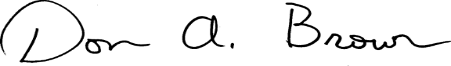 Don A. Brown